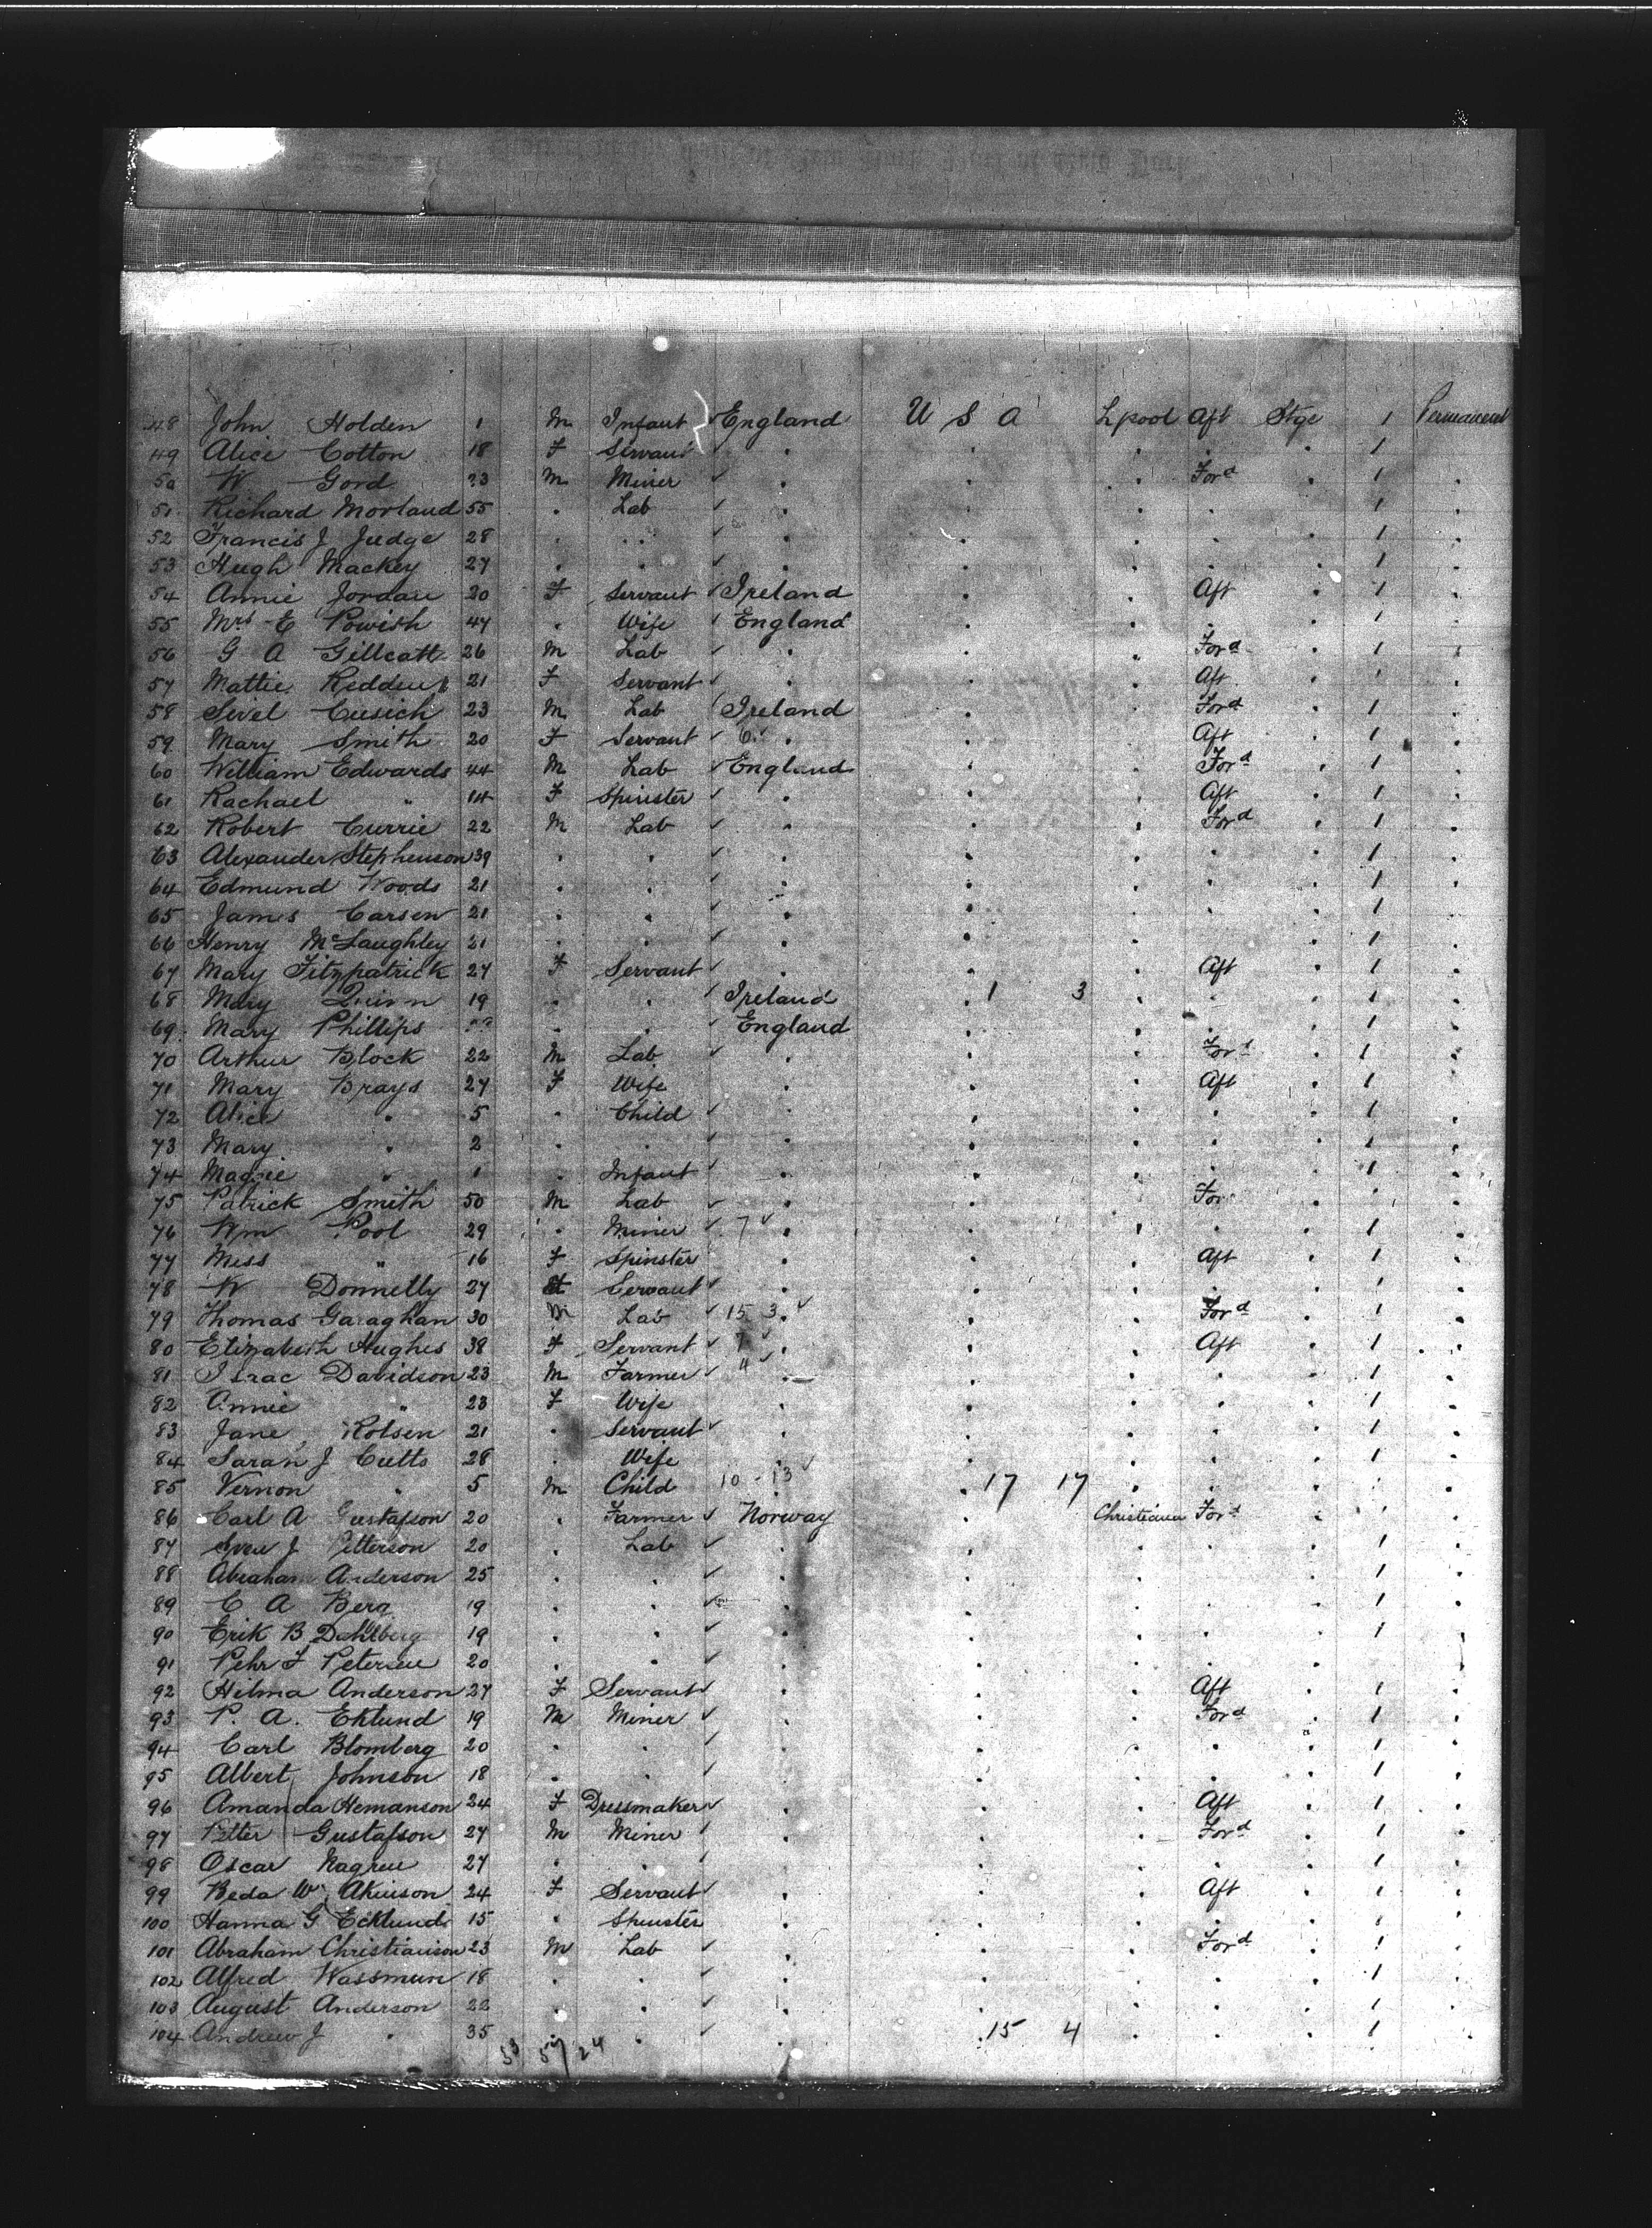 48 John Holden 1 M Infant England U S A Lpool Aft Stge 1 Permanent
49 Alice Cotton 18 F Servant . . . . . 1 .
50 W Gord 23 M Miner . . . Ford . 1 .
51 Richard Morland 55 . Lab . . . . . 1 .
52 Francis J Judge 28 . . . . . . . 1 .
53 Hugh Mackey 27 . . . . . . . 1 .
54 Annie Jordan 20 F Servant Ireland . . Aft . 1 .
55 Mrs E Powish 47 . Wife England . . . . 1 .
56 G A Gillcatt 26 M Lab . . . Ford . 1 .
57 Mattie Redden 21 F Servant . . . Aft . 1 .
58 Sivel Cusich 23 M Lab Ireland . . Ford . 1 .
59 Mary Smith 20 F Servant . . . Aft . 1 .
60 William Edwards 44 M Lab England . . Ford . 1 .
61 Rachael " 14 F Spinster . . . Aft . 1 .
62 Robert Currie 22 M Lab . . . Ford . 1 .
63 Alexander Stephenson 39 . . . . . . . 1 .
64 Edmund Woods 21 . . . . . . . 1 .
65 James Carsen 21 . . . . . . . 1 .
66 Henry McLaughley 21 . . . . . . . 1 .
67 Mary Fitzpatrick 27 F Servant . . . Aft . 1 .
68 Mary Quinn 19 . . Ireland . 1 3 . . . 1 .
69 Mary Phillips . . England . . . . 1 .
70 Arthur Block 22 M Lab . . . Ford . 1 .
71 Mary Brays 27 F Wife . . . Aft . 1 .
72 Alice " 5 . Child . . . . . 1 .
73 Mary " 2 . . . . . . . 1 .
74 Magie " 1 . Infant . . . . . 1 .
75 Patrick Smith 50 M Lab . . . For . .
76 Wm Pool 29 . Miner 7 . . . . . 1 .
77 Miss " 16 F Spinster . . . Aft . 1 .
78 W Donnelly 27 Servant . . . . . 1 .
79 Thomas Garaghan 30 M Lab 15 3 . . . Ford . 1 .
80 Elizabeth Hughes 38 F Servant 7 . . . Aft . 1 .
81 Israc Davidson 23 M Farmer 4 . . . . . 1 .
82 Annie " 23 F Wife . . . . . 1 .
83 Jane Rolsen 21 . Servant . . . . . 1 .
84 Sarah J Cutts 28 . Wife . . . . . 1 .
85 Vernon " 5 M Child 10 - 13 . 17 17 . . . .
86 Carl A Gustafson 20 . Farmer Norway . Christiania Ford . 1 .
87 Sven J Petterson 20 . Lab . . . . . 1 .
88 Abraham Anderson 25 . . . . . . . 1 .
89 C A Berg 19 . . . . . . . 1 .
90 Erik B Dahlberg 19 . . . . . . . 1 .
91 Pehr F Petersen 20 . . . . . . .
92 Hilma Anderson 27 F Servant . . . Aft . 1 .
93 P. A. Eklund 19 M Miner . . . Ford . 1 .
94 Carl Blomberg 20 . . . . . . . 1 .
95 Albert Johnson 18 . . . . . . . 1 .
96 Amanda Hemanson 24 F Dressmaker . . . Aft . 1 .
97 Petter Gustafson 27 M Miner . . . Ford . 1 .
98 Oscar Nagren 27 . . . . . . . 1 .
99 Beda W Akinson 24 F Servant . . . Aft . 1 .
100 Hanna G Ecklund 15 . Spinster . . . . . 1 .
101 Abraham Christianson 23 M Lab . . . Ford . 1 .
102 Alfred Wassmun 18 . . . . . . . 1 .
103 August Anderson 22 . . . . . . . 1 .
104 Andrew J " 35 . . . 15 4 . . . 1 .
53 57/24